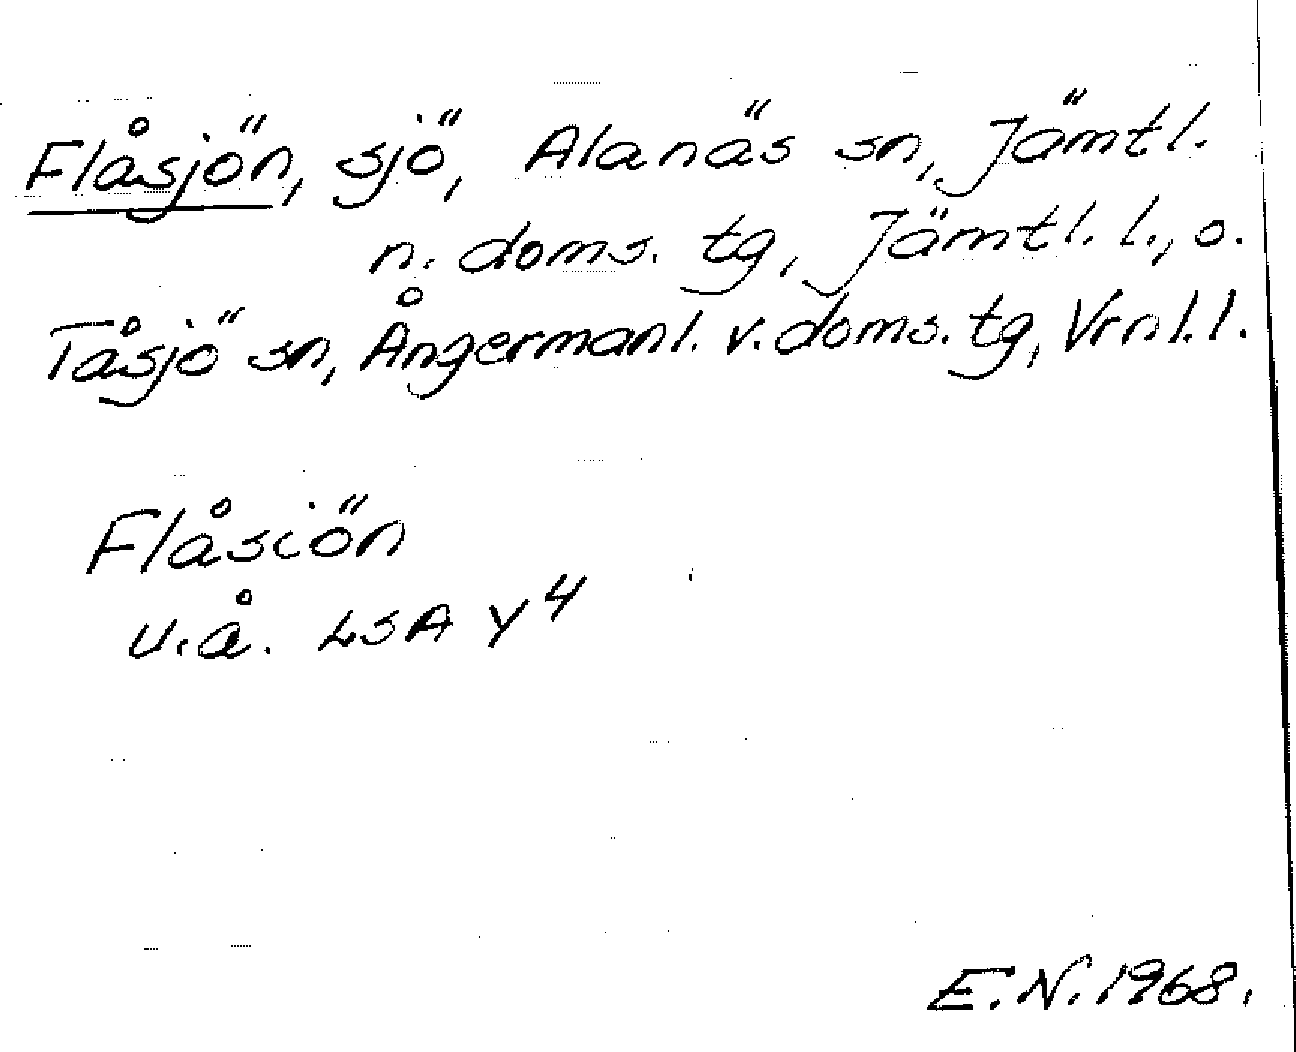 Flåsjön, sjö, Alanäs sn, Jämtl.
n. doms. tg, Jämtl. l., o.
Tåsjö sn, Ångermanl. v. doms. tg, Vrnl. l.
Flåsiön
u.å. LSA Y4
E.N. 1968.